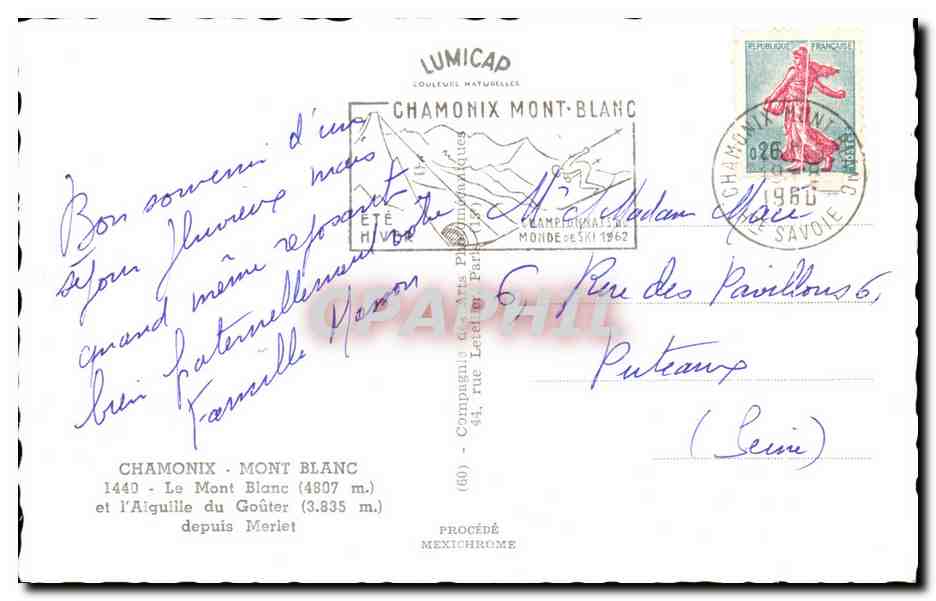 LUMICAP
COULEURS NATURELLES
CHAMONIX MONT-BLANC
ÉTÉ
HIVER
CHAMPIONNATS DU
MONDE DE SKI 1962
RÉPUBLIQUE FRANÇAISE
POSTES
CHAMONIX MONT BLANC
1960
HTE SAVOIE
Bon souvenir d'un
séjour pluvieux mais
quand même reposant
bien fraternellement vôtre
Famille
Mr & Madame
6, Rue des Pavillons 6,
Puteaux
(Seine)
(60) - Compagnie des Arts Photomécaniques
44, rue Letellier - Paris (15e)
CPAPHIL
CHAMONIX - MONT BLANC
1440 - Le Mont Blanc (4807 m.)
et l'Aiguille du Goûter (3.835 m.)
depuis Merlet
PROCÉDÉ
MEXICHROME